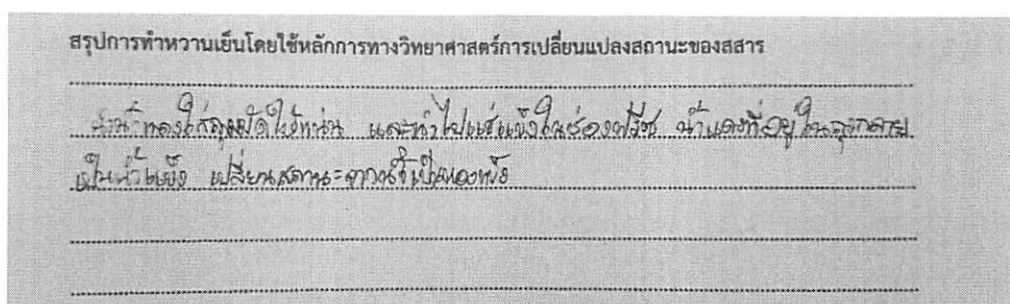 สรุปการทำหวานเย็นโดยใช้หลักการทางวิทยาศาสตร์การเปลี่ยนแปลงสถานะของสสาร
น้ำแดงใส่ถุงมัดให้แน่น และนำไปแช่แข็งในช่องฟรีช น้ำแดงที่อยู่ในถุงกลาย
เป็นน้ำแข็ง เปลี่ยนสถานะจากน้ำเป็นของแข็ง